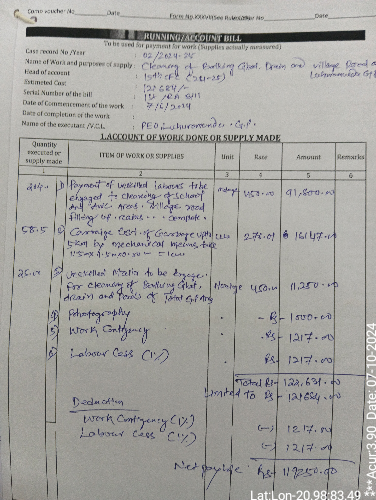 Comp Voucher No Date Form No.XXXVII(See Rules) Date
RUNNING/ACCOUNT BILL
To be used for payment for work (Supplies actually measured)
Case record No /Year : 02/2024-25
Name of Work and purposes of supply : Cleaning of Bathing Ghat, Drain and village Road
Head of account : 15th CFC (2024-25)
Estimated Cost : 121684/-
Serial Number of the bill : 1st RA Bill
Date of Commencement of the work : 7/6/2024
Date of completion of the work :
Name of the executant /V.L.L : PEO G.P.
1.ACCOUNT OF WORK DONE OR SUPPLY MADE
Quantity executed or supply made ITEM OF WORK OR SUPPLIES Unit Rate Amount Remarks
1 2 3 4 5 6
1) Payment of unskilled labours to be
engaged to cleaning of School
and Areas, village road
filling up
450.00 91,800.00
58.5 2) Carriage Cost of Garbage upto
5km by mechanical means
Cum 276.01 16147.00
25.00 3) Unskilled to be Engage
for cleaning of Bathing Ghat,
drain and Total
450.00 11,250.00
4) Photography - Rs- 1000.00
5) Work Contigency Rs- 1217.00
6) Labour Cess (1%) Rs- 1217.00
Total Rs- 122,631.00
Limited to Rs- 121684.00
Deduction
Work Contigency (1%) (-) 1217.00
Labour Cess (1%) (-) 1217.00
Net payable Rs- 119250.00
Lat:Lon-20.98:83.49
***Acur:3.90 Date: 07-10